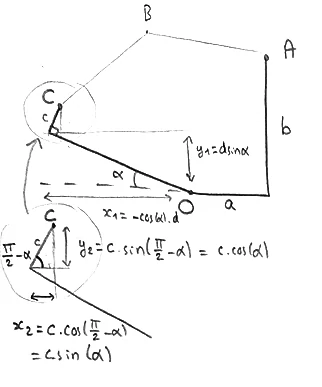 B
A
C
c
b
y₁=dsinα
α
O
a
x₁=-cos(α).d
C
π/2-α
c
y₂=c.sin(π/2-α) = c.cos(α)
x₂=c.cos(π/2-α)
=csin(α)